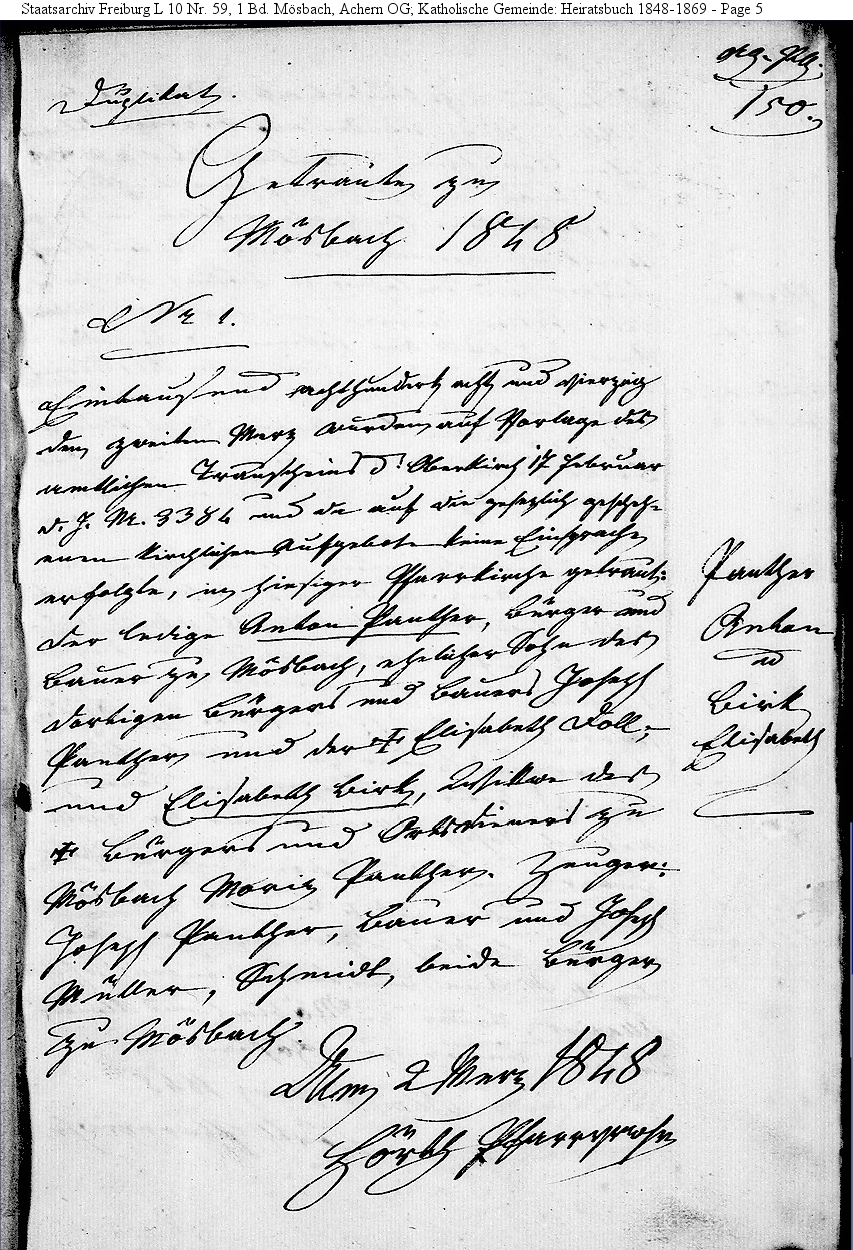 Staatsarchiv Freiburg L 10 Nr. 59, 1 Bd. Mösbach, Achern OG; Katholische Gemeinde: Heiratsbuch 1848-1869 - Page 5
Duplikat.
150.
Getraute zu
Mösbach 1848
Nr 1.
Eintausend achthundert acht und vierzig
den zweiten Merz wurden auf Vorlage des
amtlichen Trauscheins d. Oberkirch 17 Februar
d. J. Nr. 3384 und da auf die gesezlich gescheh-
enen kirchlichen Aufgebote keine Einsprache
erfolgte, in hiesiger Pfarrkirche getraut:
der ledige Anton Panther, Bürger und
Bauer zu Mösbach, ehelicher Sohn des
dortigen Bürgers und Bauers Joseph
Panther und der ✝ Elisabeth Doll;
und Elisabeth Birk, Wittwe des
✝ Bürgers und Ortsdieners zu
Mösbach Moriz Panther. Zeugen:
Joseph Panther, Bauer und Joseph
Müller, Schmidt, beide Bürger
zu Mösbach
Den 2 Merz 1848
Hörth Pfarrverw.
Panther
Anton
u
Birk
Elisabeth